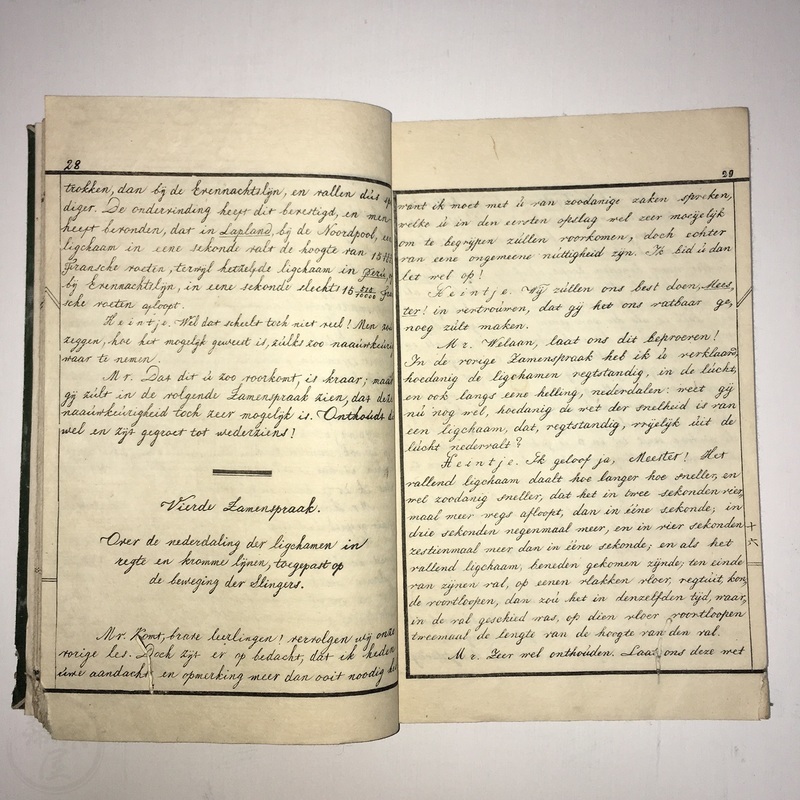 28
trokken, dan bij de Evennachtslijn, en vallen dús
diger. De ondervinding heeft dit bevestigd, en men
heeft bevonden, dat in Lapland, bij de Noordpool, een
ligchaam in eene sekonde valt de hoogte van 15
Fransche voeten, terwijl hetzelfde ligchaam in Perú,
bij Evennachtslijn, in eene sekonde slechts 15
sche voeten afloopt.
Heintje. Wel dat scheelt toch niet veel! Men
zeggen, hoe het mogelijk geweest is, zúlks zoo naaúwkeúrig
waar te nemen.
Mr. Dat dit ú zoo voorkomt, is klaar; maar
gij zúlt in de volgende Zamenspraak zien, dat deze
naaúwkeúrigheid toch zeer mogelijk is. Onthoúdt
wel en zijt gegroet tot wederziens!
Vierde Zamenspraak.
Over de nederdaling der ligchamen in
regte en kromme lijnen, toegepast op
de beweging der Slingers.
Mr. Komt, brave leerlingen! vervolgen wij onze
vorige les. Doch zijt er op bedacht, dat ik heden
úwe aandacht en opmerking meer dan ooit noodig
29
want ik moet met ú van zoodanige zaken spreken,
welke ú in den eersten opslag wel zeer moeijelijk
om te begrijpen zúllen voorkomen, doch echter
van eene ongemeene núttigheid zijn. Ik bid ú dan
let wel op!
Heintje. Wij zúllen ons best doen, Mees,
ter! in vertroúwen, dat gij het ons vatbaar ge,
noeg zúlt maken.
Mr. Welaan, laat ons dit beproeven!
In de vorige Zamenspraak heb ik ú verklaard,
hoedanig de ligchamen regtstandig, in de lúcht,
en ook langs eene helling, nederdalen: weet gij
nú nog wel, hoedanig de wet der snelheid is van
een ligchaam, dat, regtstandig, vrijelijk úit de
lúcht nedervalt?
Heintje. Ik geloof ja, Meester! Het
vallend ligchaam daalt hoe langer hoe sneller, en
wel zoodanig sneller, dat het in twee sekonden vier,
maal meer wegs afloopt, dan in ééne sekonde; in
drie sekonden negenmaal meer, en in vier sekonden
zestienmaal meer dan in ééne sekonde; en als het
vallend ligchaam, beneden gekomen zijnde, ten einde
van zijnen val, op eenen vlakken vloer, regtúit, kon
de voortloopen, dan zoú het in denzelfden tijd, waar,
in de val geschied was, op dien vloer voortloopen
tweemaal de lengte van de hoogte van den val.
Mr. Zeer wel onthoúden. Laat ons deze wet
十
六